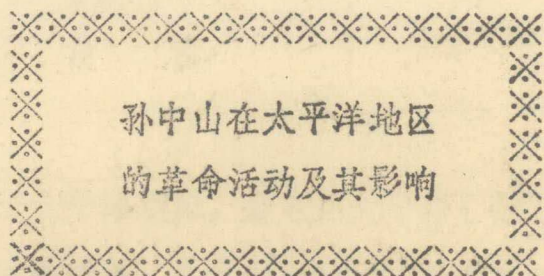 孙中山在太平洋地区
的革命活动及其影响